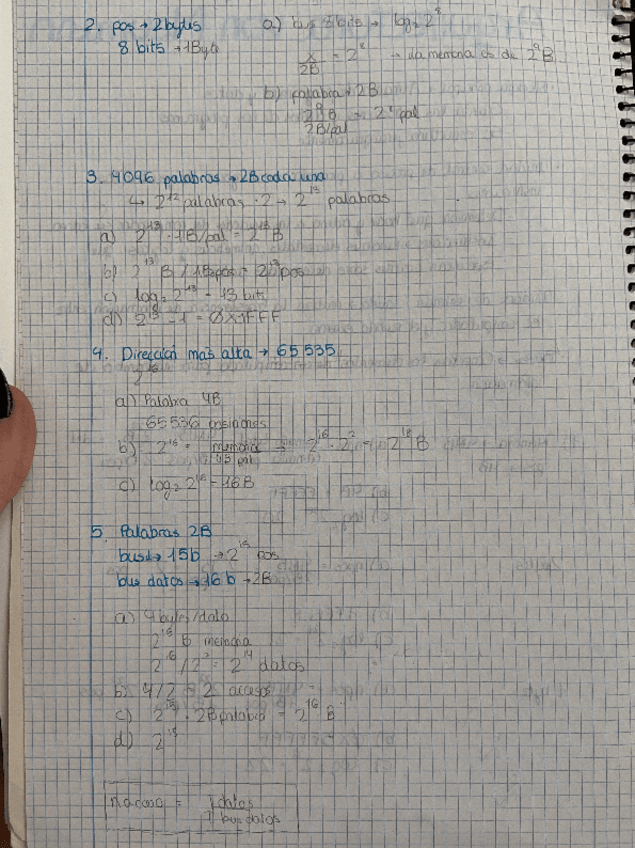 2. pos → 2bytes a) bus 8 bits → log₂ 2⁸
8 bits → 1Byte
x/2B = 2⁸ → la memoria es de 2⁹B
b) palabra → 2B
2⁹B / 2B/pal = 2⁸ pal
3. 4096 palabras → 2B cada una
↳ 2¹² palabras · 2 → 2¹³ palabras
a) 2¹³ · 1B/pal = 2¹³ B
b) 2¹³ B / 1B pos = 2¹³ pos
c) log₂ 2¹³ = 13 bits
d) 2¹³ - 1 = 0x1FFF
4. Dirección más alta → 65535
2¹⁶
a) Palabra 4B
65536 posiciones
b) 2¹⁶ = memoria → 2¹⁶ · 2² = 2¹⁸ B
c) log₂ 2¹⁶ = 16B
5. Palabras 2B
bus d → 15b → 2¹⁵ pos
bus datos → 16 b → 2B
a) 4 bytes/dato
2¹⁶ B memoria
2¹⁶ / 2² = 2¹⁴ datos
b) 4/2 = 2 accesos
c) 2¹⁵ · 2B palabra = 2¹⁶ B
d) 2¹⁵
= T datos
T bus datos